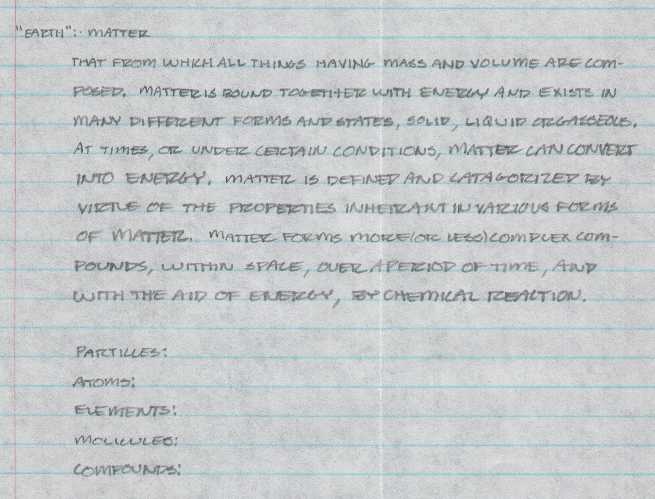 "EARTH": MATTER
THAT FROM WHICH ALL THINGS HAVING MASS AND VOLUME ARE COM-
POSED. MATTER IS BOUND TOGETHER WITH ENERGY AND EXISTS IN
MANY DIFFERENT FORMS AND STATES, SOLID, LIQUID OR GASSEOUS.
AT TIMES, OR UNDER CERTAIN CONDITIONS, MATTER CAN CONVERT
INTO ENERGY. MATTER IS DEFINED AND CATAGORIZED BY
VIRTUE OF THE PROPERTIES INHERANT IN VARIOUS FORMS
OF MATTER. MATTER FORMS MORE (OR LESS) COMPLEX COM-
POUNDS, WITHIN SPACE, OVER A PERIOD OF TIME, AND
WITH THE AID OF ENERGY, BY CHEMICAL REACTION.
PARTICLES:
ATOMS:
ELEMENTS:
MOLICULES:
COMPOUNDS: